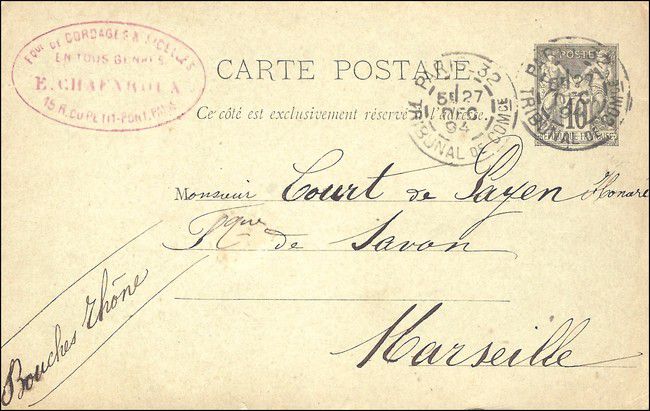 FQUE DE CORDAGES & FICELLES
EN TOUS GENRES
E.
15 R. DU PETIT-PONT, PARIS
CARTE POSTALE
Ce côté est exclusivement réservé à l'adresse.
PARIS - 32
5E 27
DEC
94
TRIBUNAL DE COMCE
POSTE
27
10
TRIBUNAL DE COMCE
Monsieur Court de Payen Honoré
Fque de Savon
Marseille
Bouches Rhône